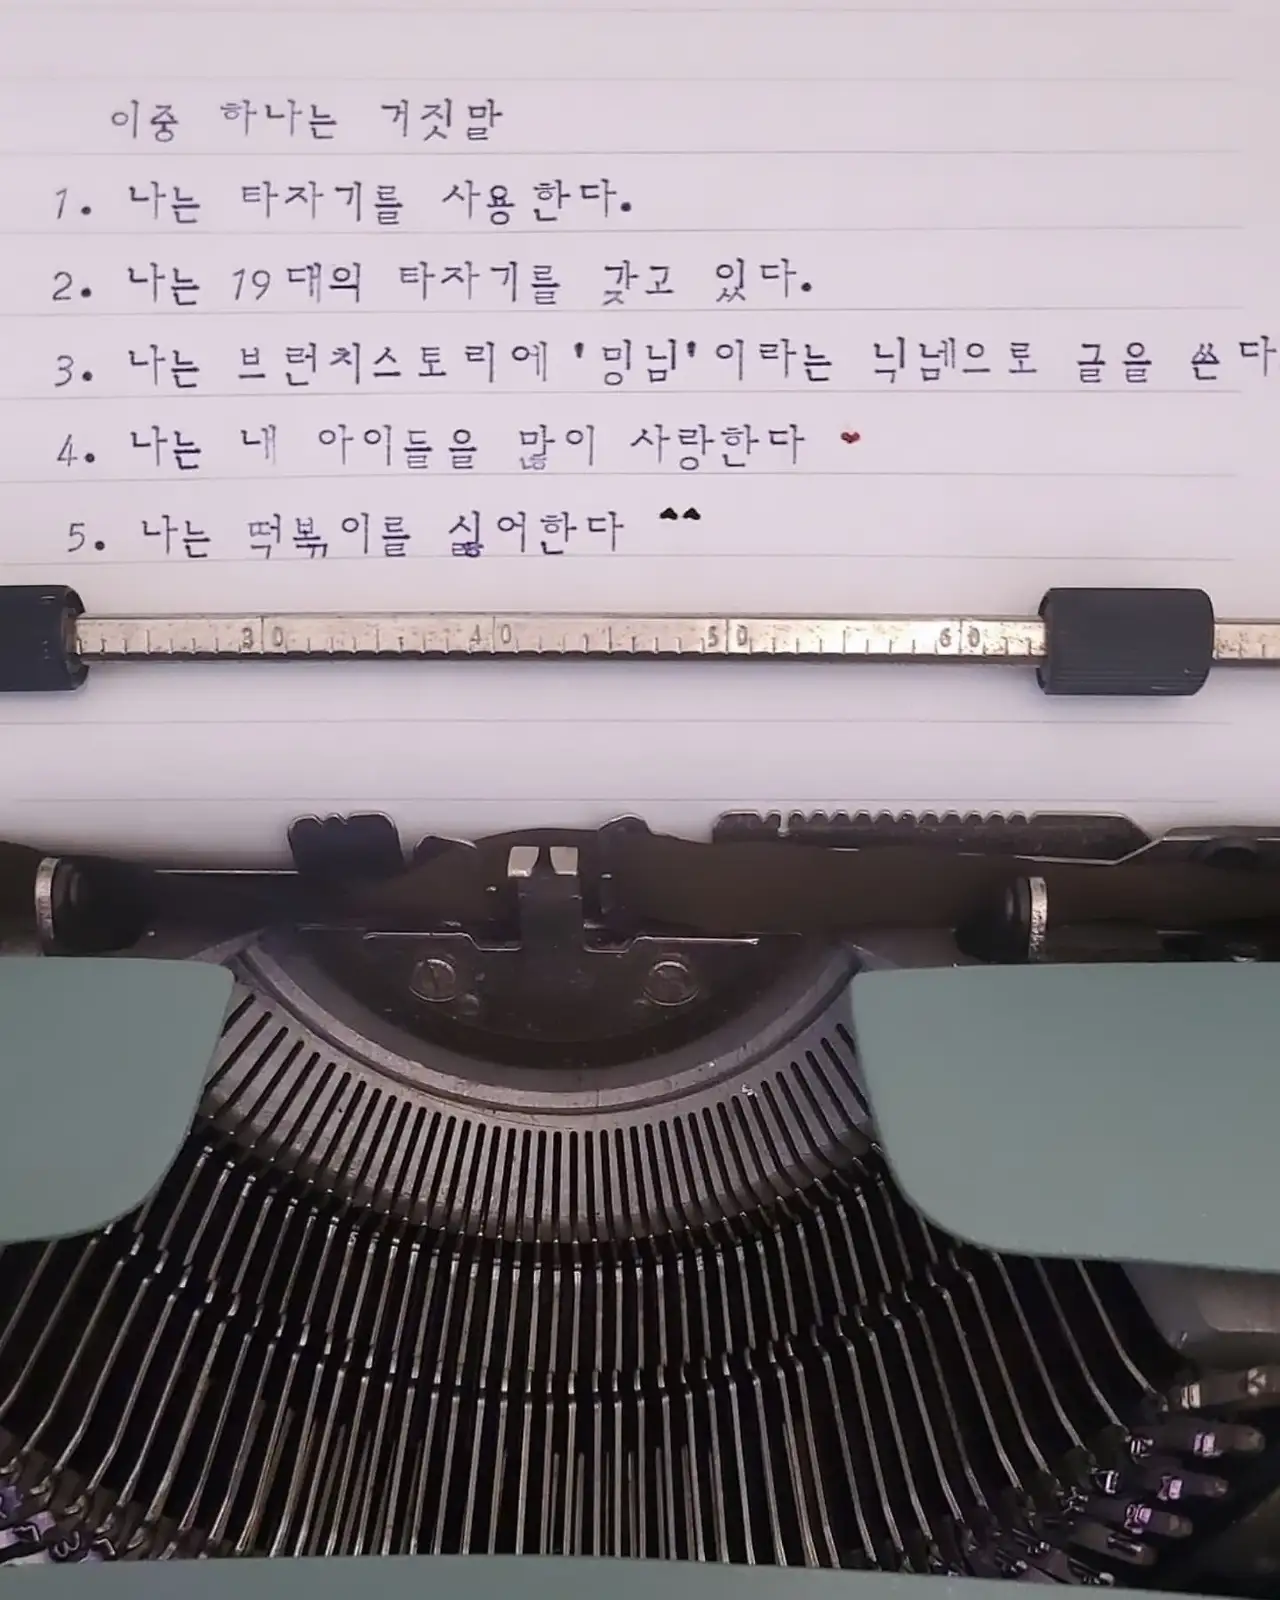 이중 하나는 거짓말
1. 나는 타자기를 사용한다.
2. 나는 19대의 타자기를 갖고 있다.
3. 나는 브런치스토리에 '밍님'이라는 닉넴으로 글을 쓴다.
4. 나는 내 아이들을 많이 사랑한다 ❤
5. 나는 떡볶이를 싫어한다 ^^
30 40 50 60